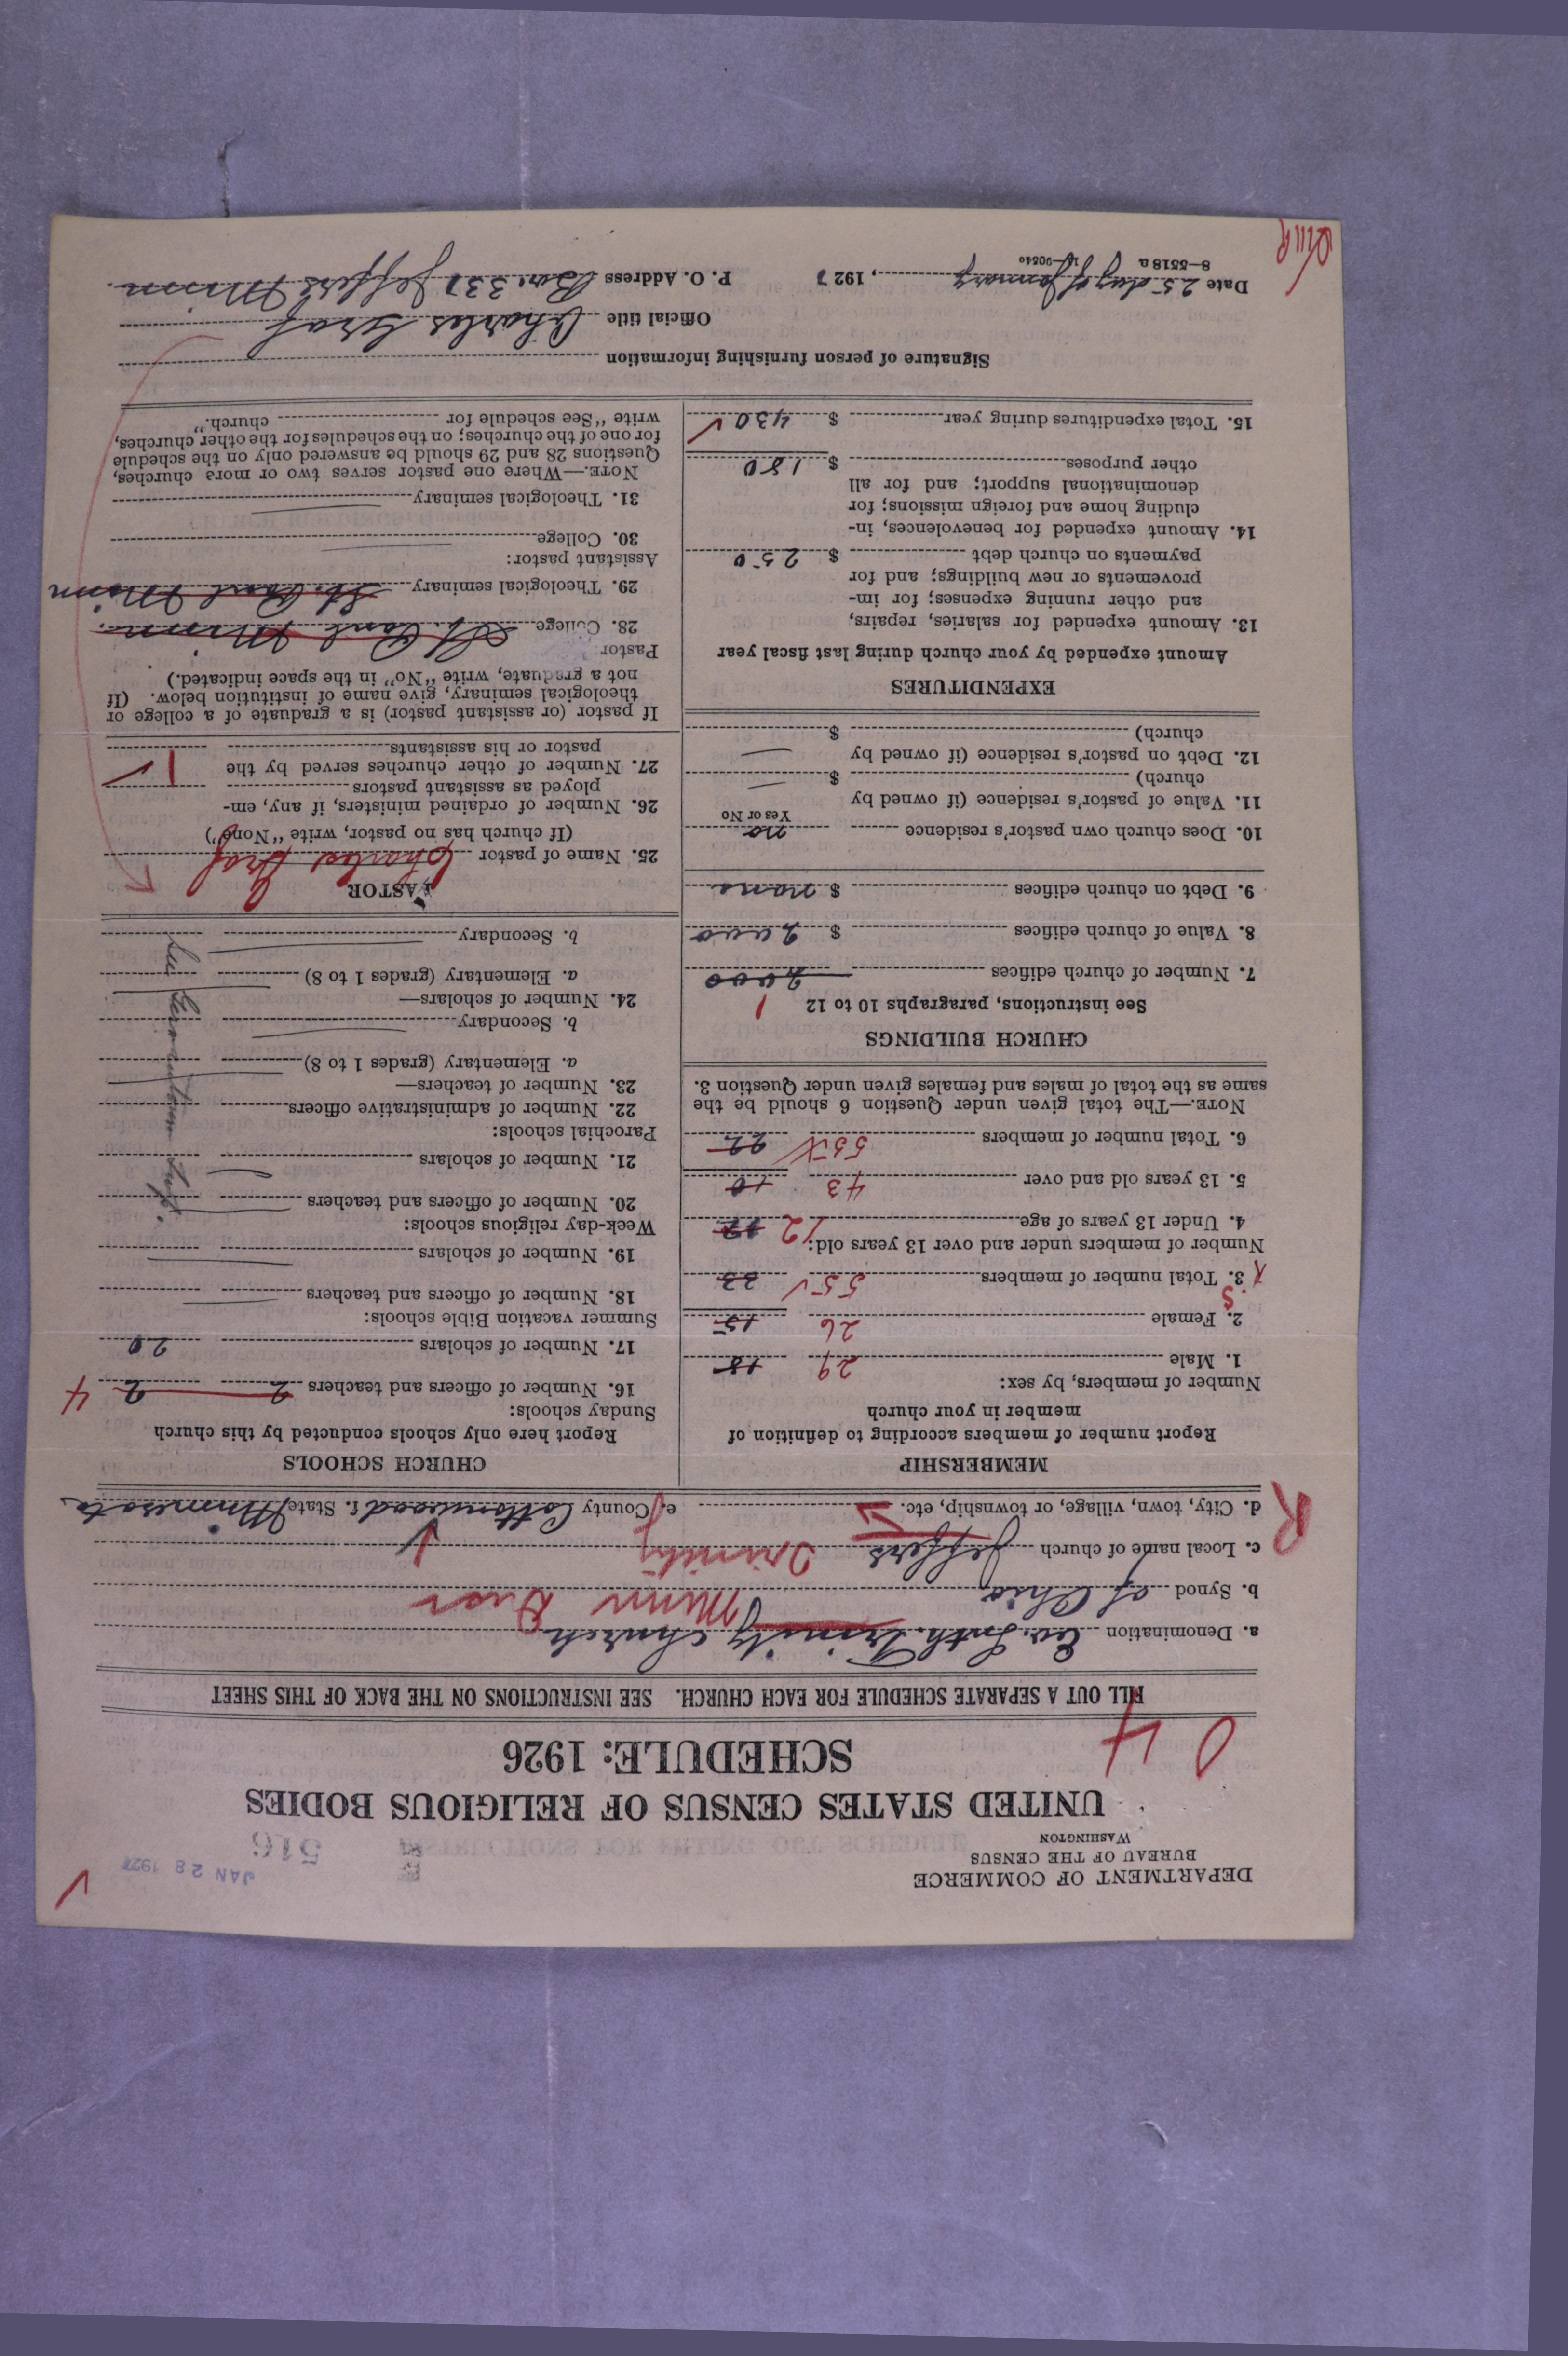 DEPARTMENT OF COMMERCE
BUREAU OF THE CENSUS
WASHINGTON
JAN 28 1927
516
UNITED STATES CENSUS OF RELIGIOUS BODIES
SCHEDULE: 1926
0 4
FILL OUT A SEPARATE SCHEDULE FOR EACH CHURCH. SEE INSTRUCTIONS ON THE BACK OF THIS SHEET
a. Denomination Ev. Luth. Trinity Church
b. Synod of Ohio
c. Local name of church Jeffers Trinity
R
d. City, town, village, or township, etc. e. County Cottonwood f. State Minnesota
MEMBERSHIP
Report number of members according to definition of
member in your church
Number of members, by sex:
1. Male 29 18
2. Female 26 15
3. Total number of members 55 33
Number of members under and over 13 years old:
4. Under 13 years of age 12
5. 13 years old and over 43 10
6. Total number of members 55 22
NOTE.—The total given under Question 6 should be the
same as the total of males and females given under Question 3.
CHURCH BUILDINGS
See instructions, paragraphs 10 to 12
1
7. Number of church edifices 2000
8. Value of church edifices $ 2000
9. Debt on church edifices $ none
10. Does church own pastor's residence no
Yes or No
11. Value of pastor's residence (if owned by
church) $
12. Debt on pastor's residence (if owned by
church) $
EXPENDITURES
Amount expended by your church during last fiscal year
13. Amount expended for salaries, repairs,
and other running expenses; for im-
provements or new buildings; and for
payments on church debt $ 250
14. Amount expended for benevolences, in-
cluding home and foreign missions; for
denominational support; and for all
other purposes $ 180
15. Total expenditures during year $ 430
CHURCH SCHOOLS
Report here only schools conducted by this church
Sunday schools:
16. Number of officers and teachers 2 2 4
17. Number of scholars 20
Summer vacation Bible schools:
18. Number of officers and teachers
19. Number of scholars
Week-day religious schools:
20. Number of officers and teachers
21. Number of scholars
Parochial schools:
22. Number of administrative officers
23. Number of teachers—
a. Elementary (grades 1 to 8)
b. Secondary
24. Number of scholars—
a. Elementary (grades 1 to 8)
b. Secondary
PASTOR
25. Name of pastor Charles Graf
(If church has no pastor, write "None")
26. Number of ordained ministers, if any, em-
ployed as assistant pastors
27. Number of other churches served by the
pastor or his assistants 1
If pastor (or assistant pastor) is a graduate of a college or
theological seminary, give name of institution below. (If
not a graduate, write "No" in the space indicated.)
Pastor:
28. College St. Paul Minn.
29. Theological seminary St. Paul Minn
Assistant pastor:
30. College
31. Theological seminary
NOTE.—Where one pastor serves two or more churches,
Questions 28 and 29 should be answered only on the schedule
for one of the churches; on the schedules for the other churches,
write "See schedule for church."
Signature of person furnishing information
Official title Charles Graf
Date 25 day of January, 1927 P. O. Address Box 331 Jeffers Minn
8—5518 a